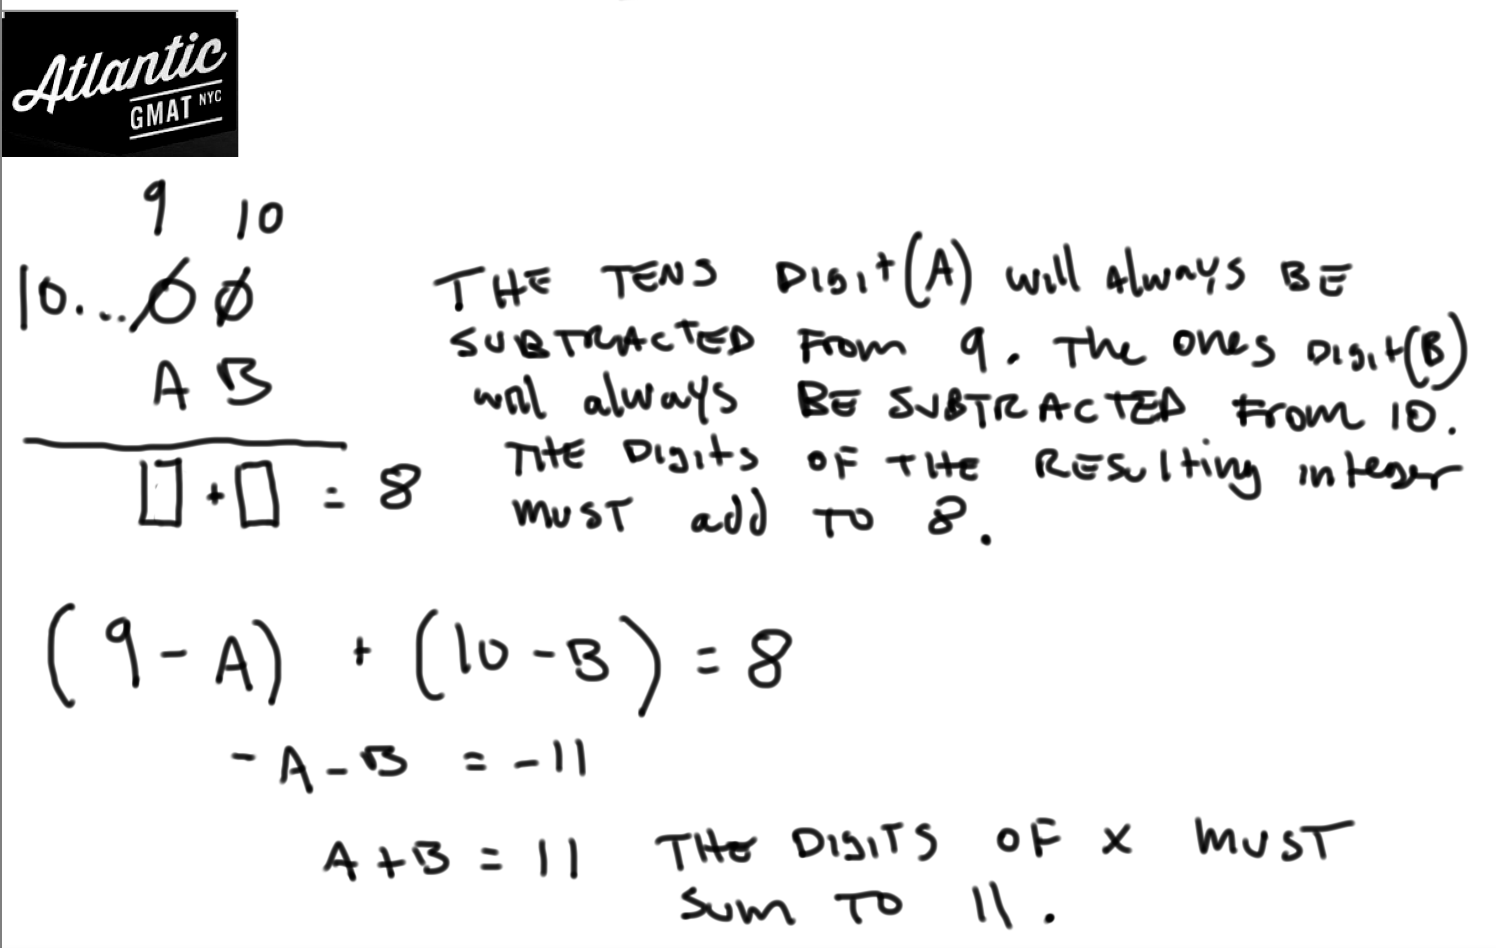 Atlantic
GMAT NYC
9 10
10...00
A B
□+□ = 8
THE TENS DIGIT(A) will always BE
SUBTRACTED From 9. The ones DIGIT(B)
will always BE SUBTRACTED From 10.
THE DIgits OF THE RESulting integer
must add TO 8.
(9-A) + (10-B) = 8
-A-B = -11
A+B = 11 THE DIGITS OF X MUST
Sum TO 11.